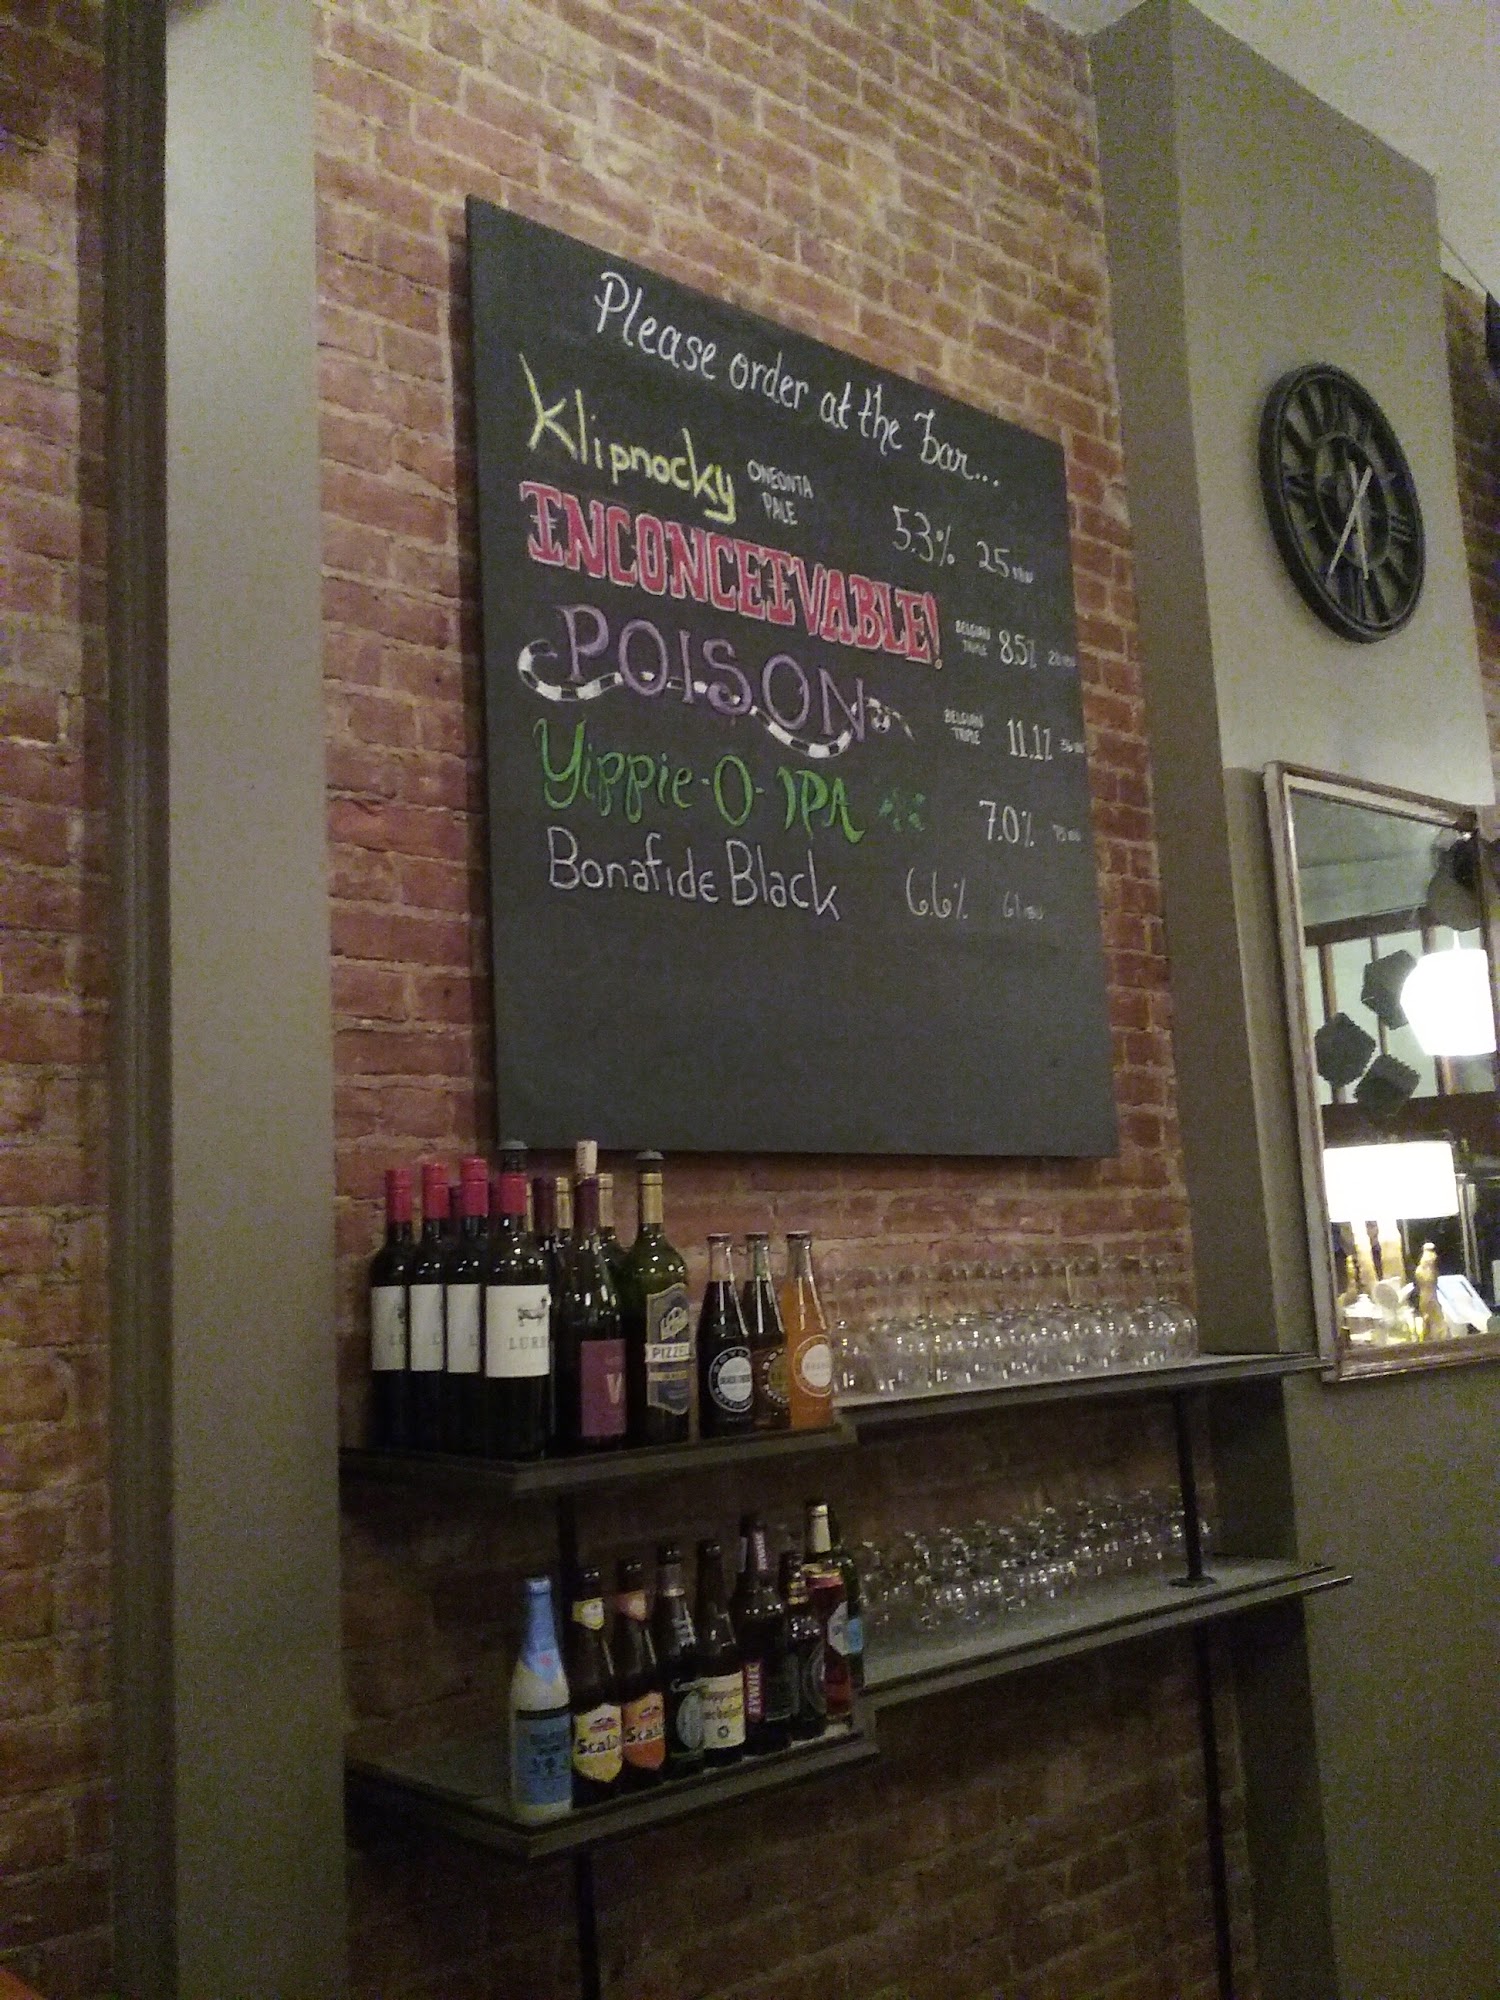 Please order at the bar...
Klipnocky ONEONTA PALE 5.3% 25 IBU
INCONCEIVABLE! BELGIAN TRIPLE 8.5%
POISON BELGIAN TRIPLE 11.1%
Yippie-O-IPA 7.0%
Bonafide Black 6.6% 61 IBU
PIZZEL
V
ŻYWIEC
ŻYWIEC
Scald
Scald